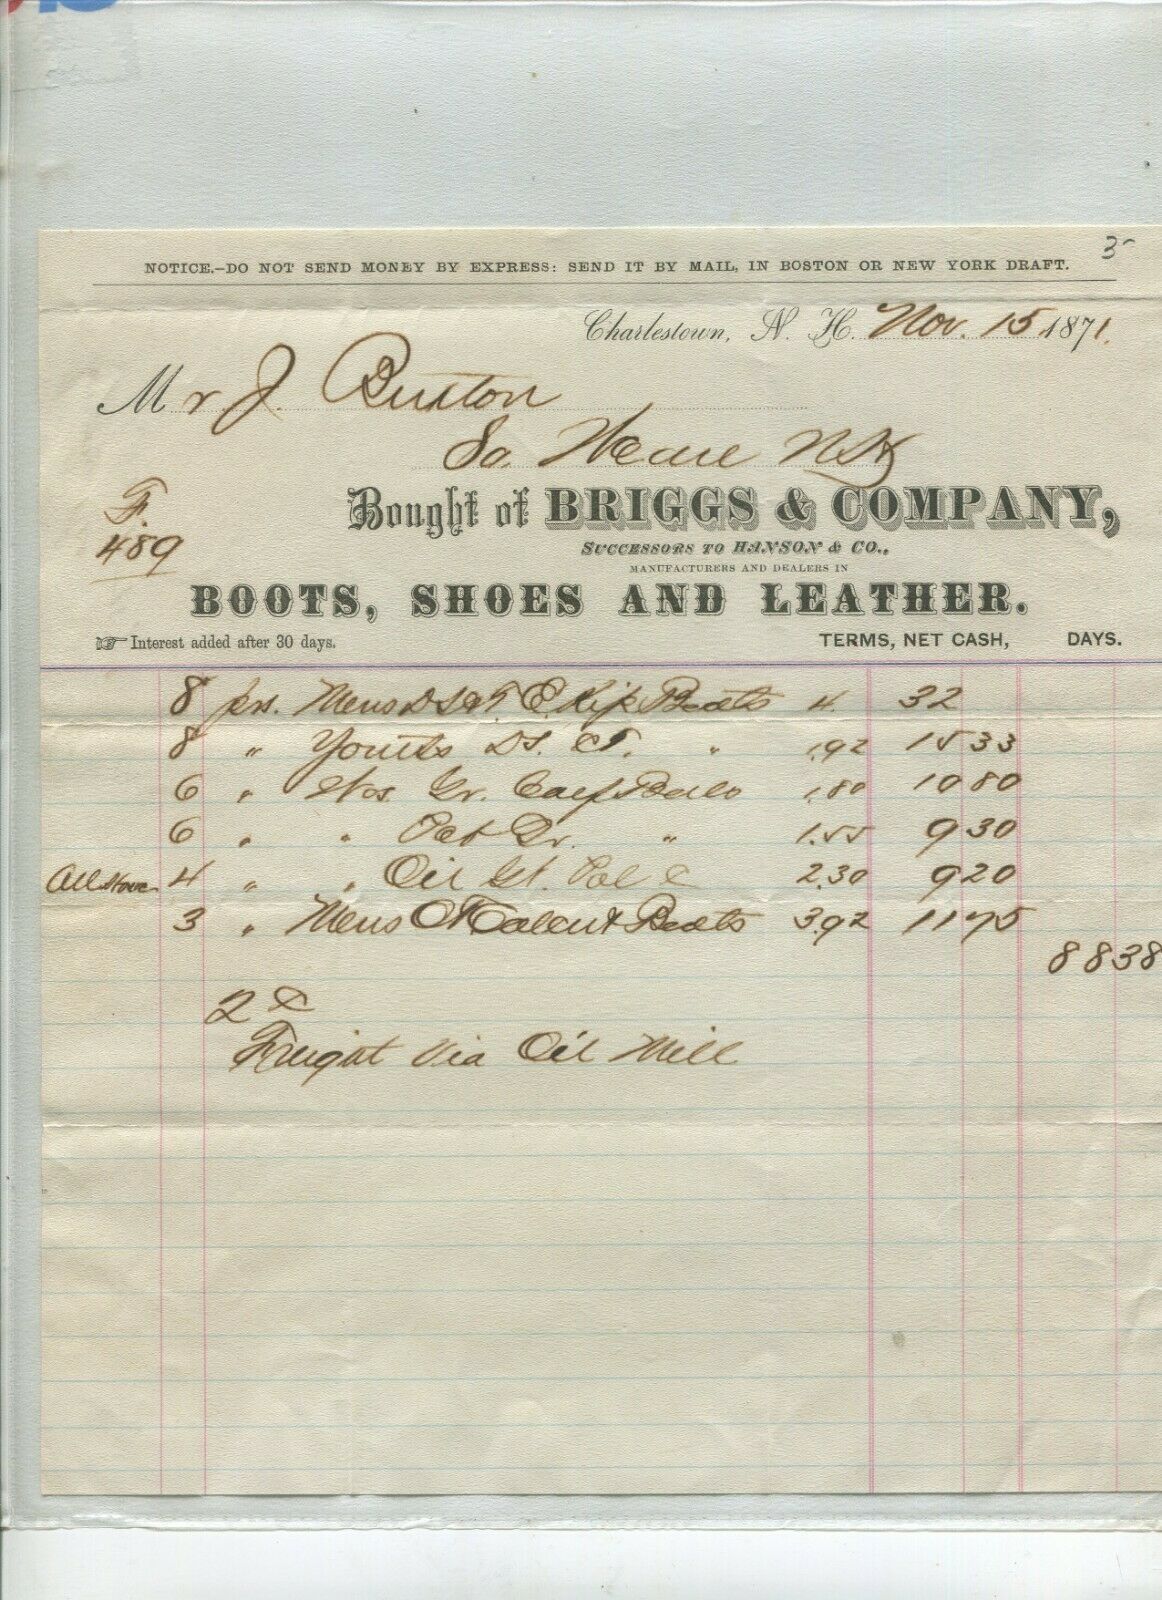 3-
NOTICE.—DO NOT SEND MONEY BY EXPRESS: SEND IT BY MAIL, IN BOSTON OR NEW YORK DRAFT.
Charlestown, N. H. Nov. 15 1871.
Mr J. Buxton
So. Weare NH
F.
489
Bought of BRIGGS & COMPANY,
SUCCESSORS TO HANSON & CO.,
MANUFACTURERS AND DEALERS IN
BOOTS, SHOES AND LEATHER.
Interest added after 30 days. TERMS, NET CASH, DAYS.
8 prs. Mens Kip Boots 4. 32
8 " Youths " 1.92 15 33
6 " Wos. Gr. Calf Bals 1.80 10 80
6 " " Gr. " 1.55 9 30
4 " " Oil 2.30 9 20
3 " Mens Boots 3.92 11 75
88 38
2
Freight Via Oil Mill